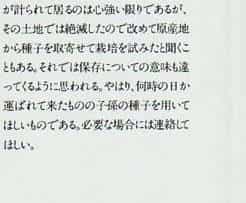 が計られて居るのは心強い限りであるが、
その土地では絶滅したので改めて原産地
から種子を取寄せて栽培を試みたと聞くこ
ともある。それでは保存についての意味も違
ってくるように思われる。やはり、何時の日か
運ばれて来たものの子孫の種子を用いて
ほしいものである。必要な場合には連絡して
ほしい。